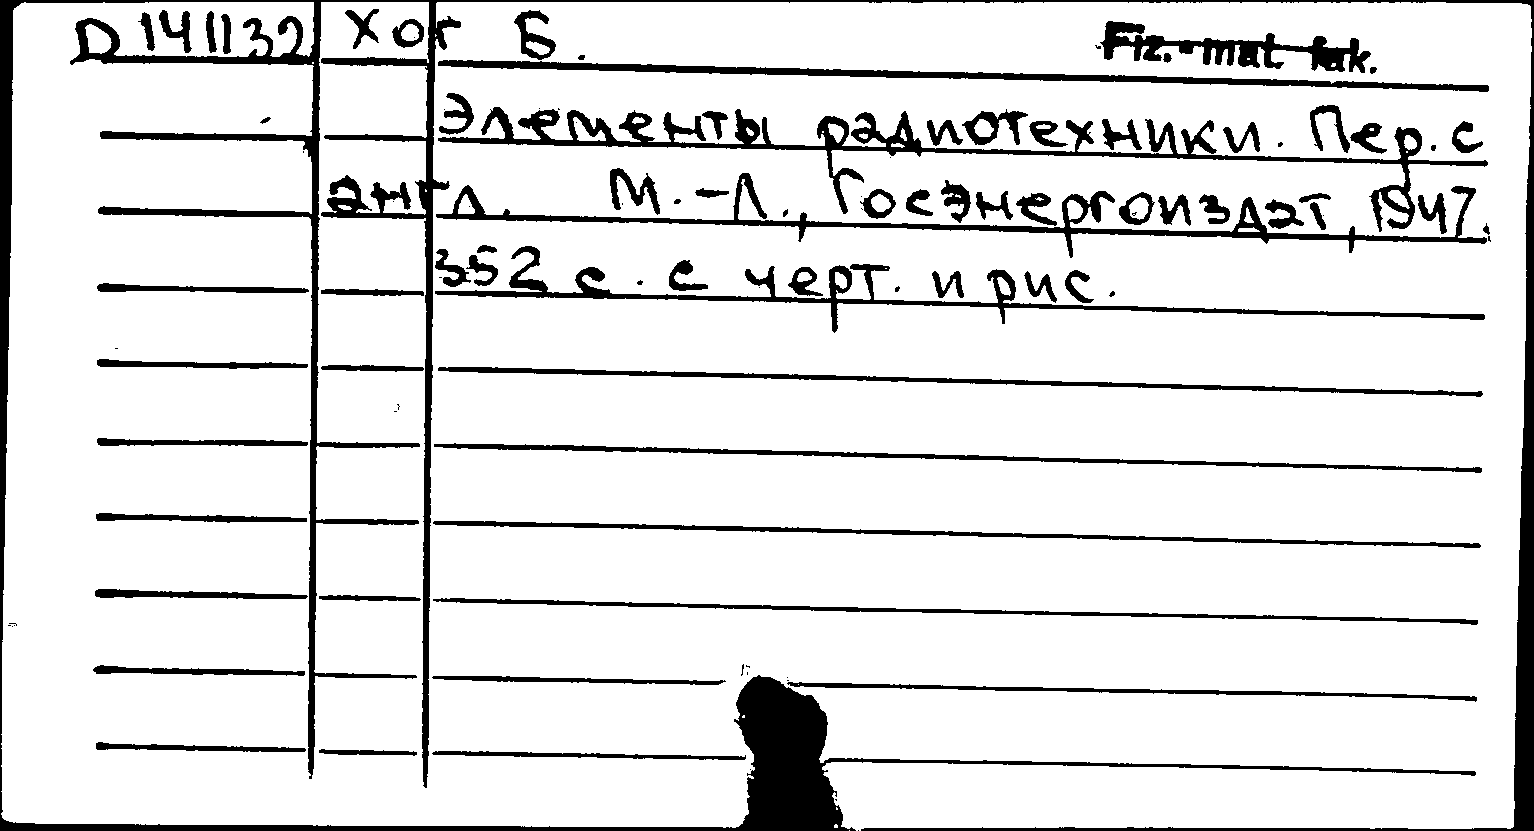 D 141132 Хог Б. Fiz.-mat. fak.
Элементы радиотехники. Пер. с
англ. М.-Л., Госэнергоиздат, 1947.
352 с. с черт. и рис.